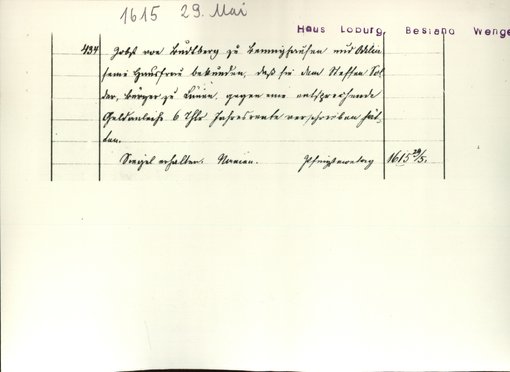 1615 29. Mai
Haus Loburg, Bestand Wenge
434 Jobst von Budberg zu Benninghausen und
seine Hausfrau bekunden, daß sie dem Steffen Sol
der, Bürger zu Lünen, gegen eine entsprechende
Geldanleihe 6 Thlr Jahresrente verschrieben hät-
ten.
Siegel erhalten. 1615 29/5.